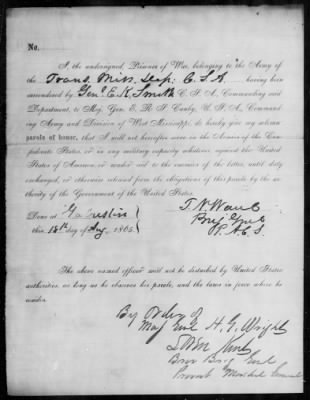 No.
I, the undersigned, Prisoner of War, belonging to the Army of
the Trans. Miss. Dep: C.S.A. having been
surrendered by Genl E. K. Smith C. S. A., Commanding said
Department, to Maj. Gen. E. R. S. Canby, U. S. A., Command-
ing Army and Division of West Mississippi, do hereby give my solemn
parole of honor, that I will not hereafter serve in the Armies of the Con-
federate States, or in any military capacity whatever, against the United
States of America, or render aid to the enemies of the latter, until duly
exchanged, or otherwise released from the obligations of this parole by the au-
thority of the Government of the United States.
T. N. Waul
Brig Genl
P. A. C. S.
Done at Galveston
this 18th day of Aug 1865.
The above named officer will not be disturbed by United States
authorities, so long as he observes his parole, and the laws in force where
he resides.
By Order of
Maj Genl H. G. Wright
Brev Brig Genl
Provost Marshal General